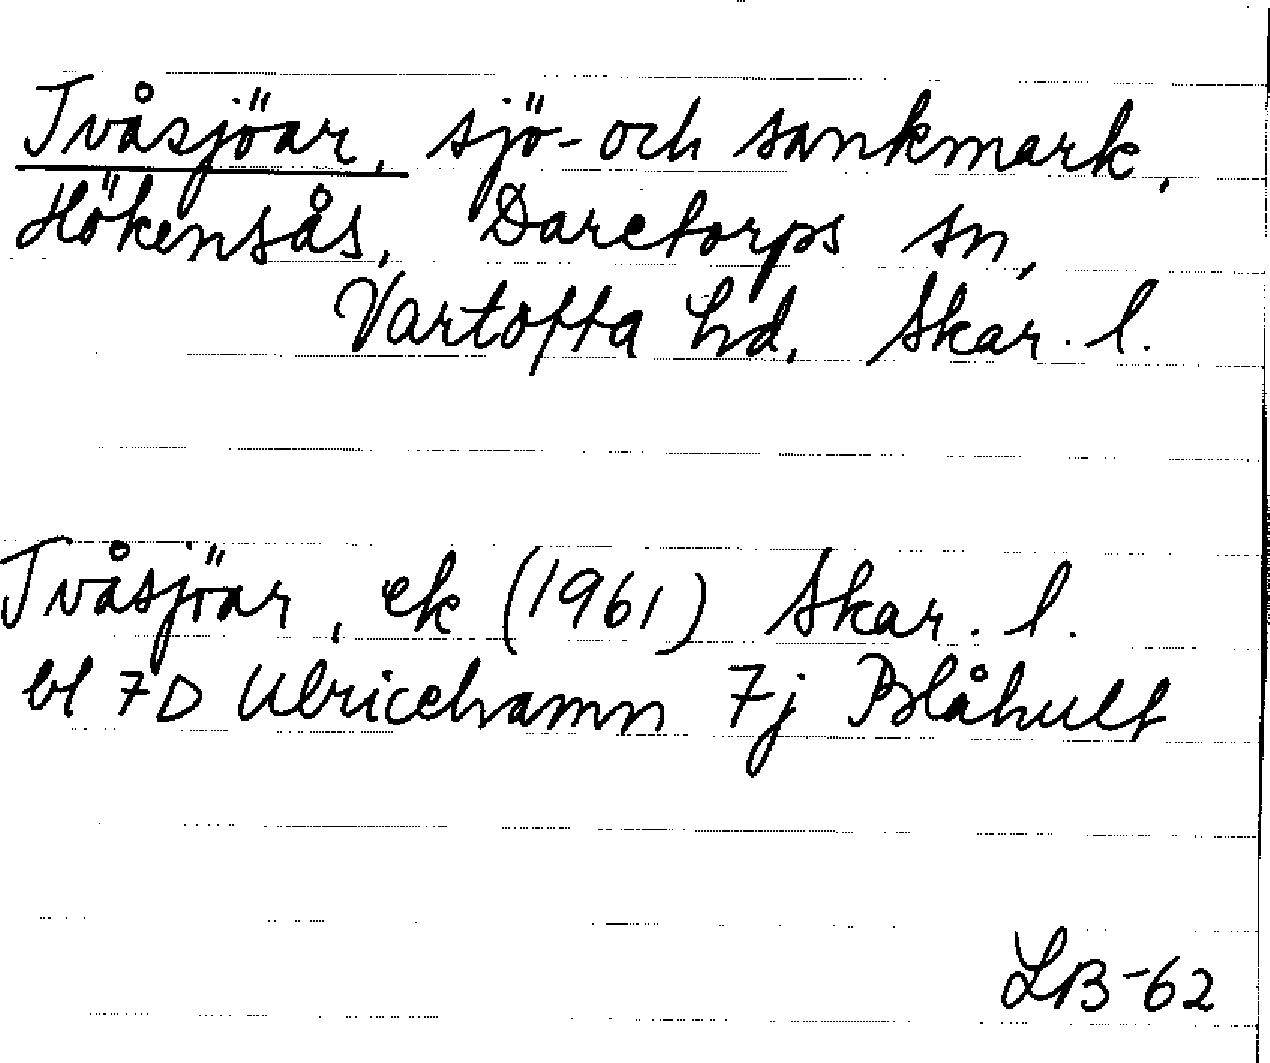 Tvåsjöar, sjö- och sankmark,
Hökensås, Daretorps sn,
Vartofta hd, Skar. l.
Tvåsjöar, ek (1961) Skar. l.
bl 7D Ulricehamn 7j Blåhult
LB-62